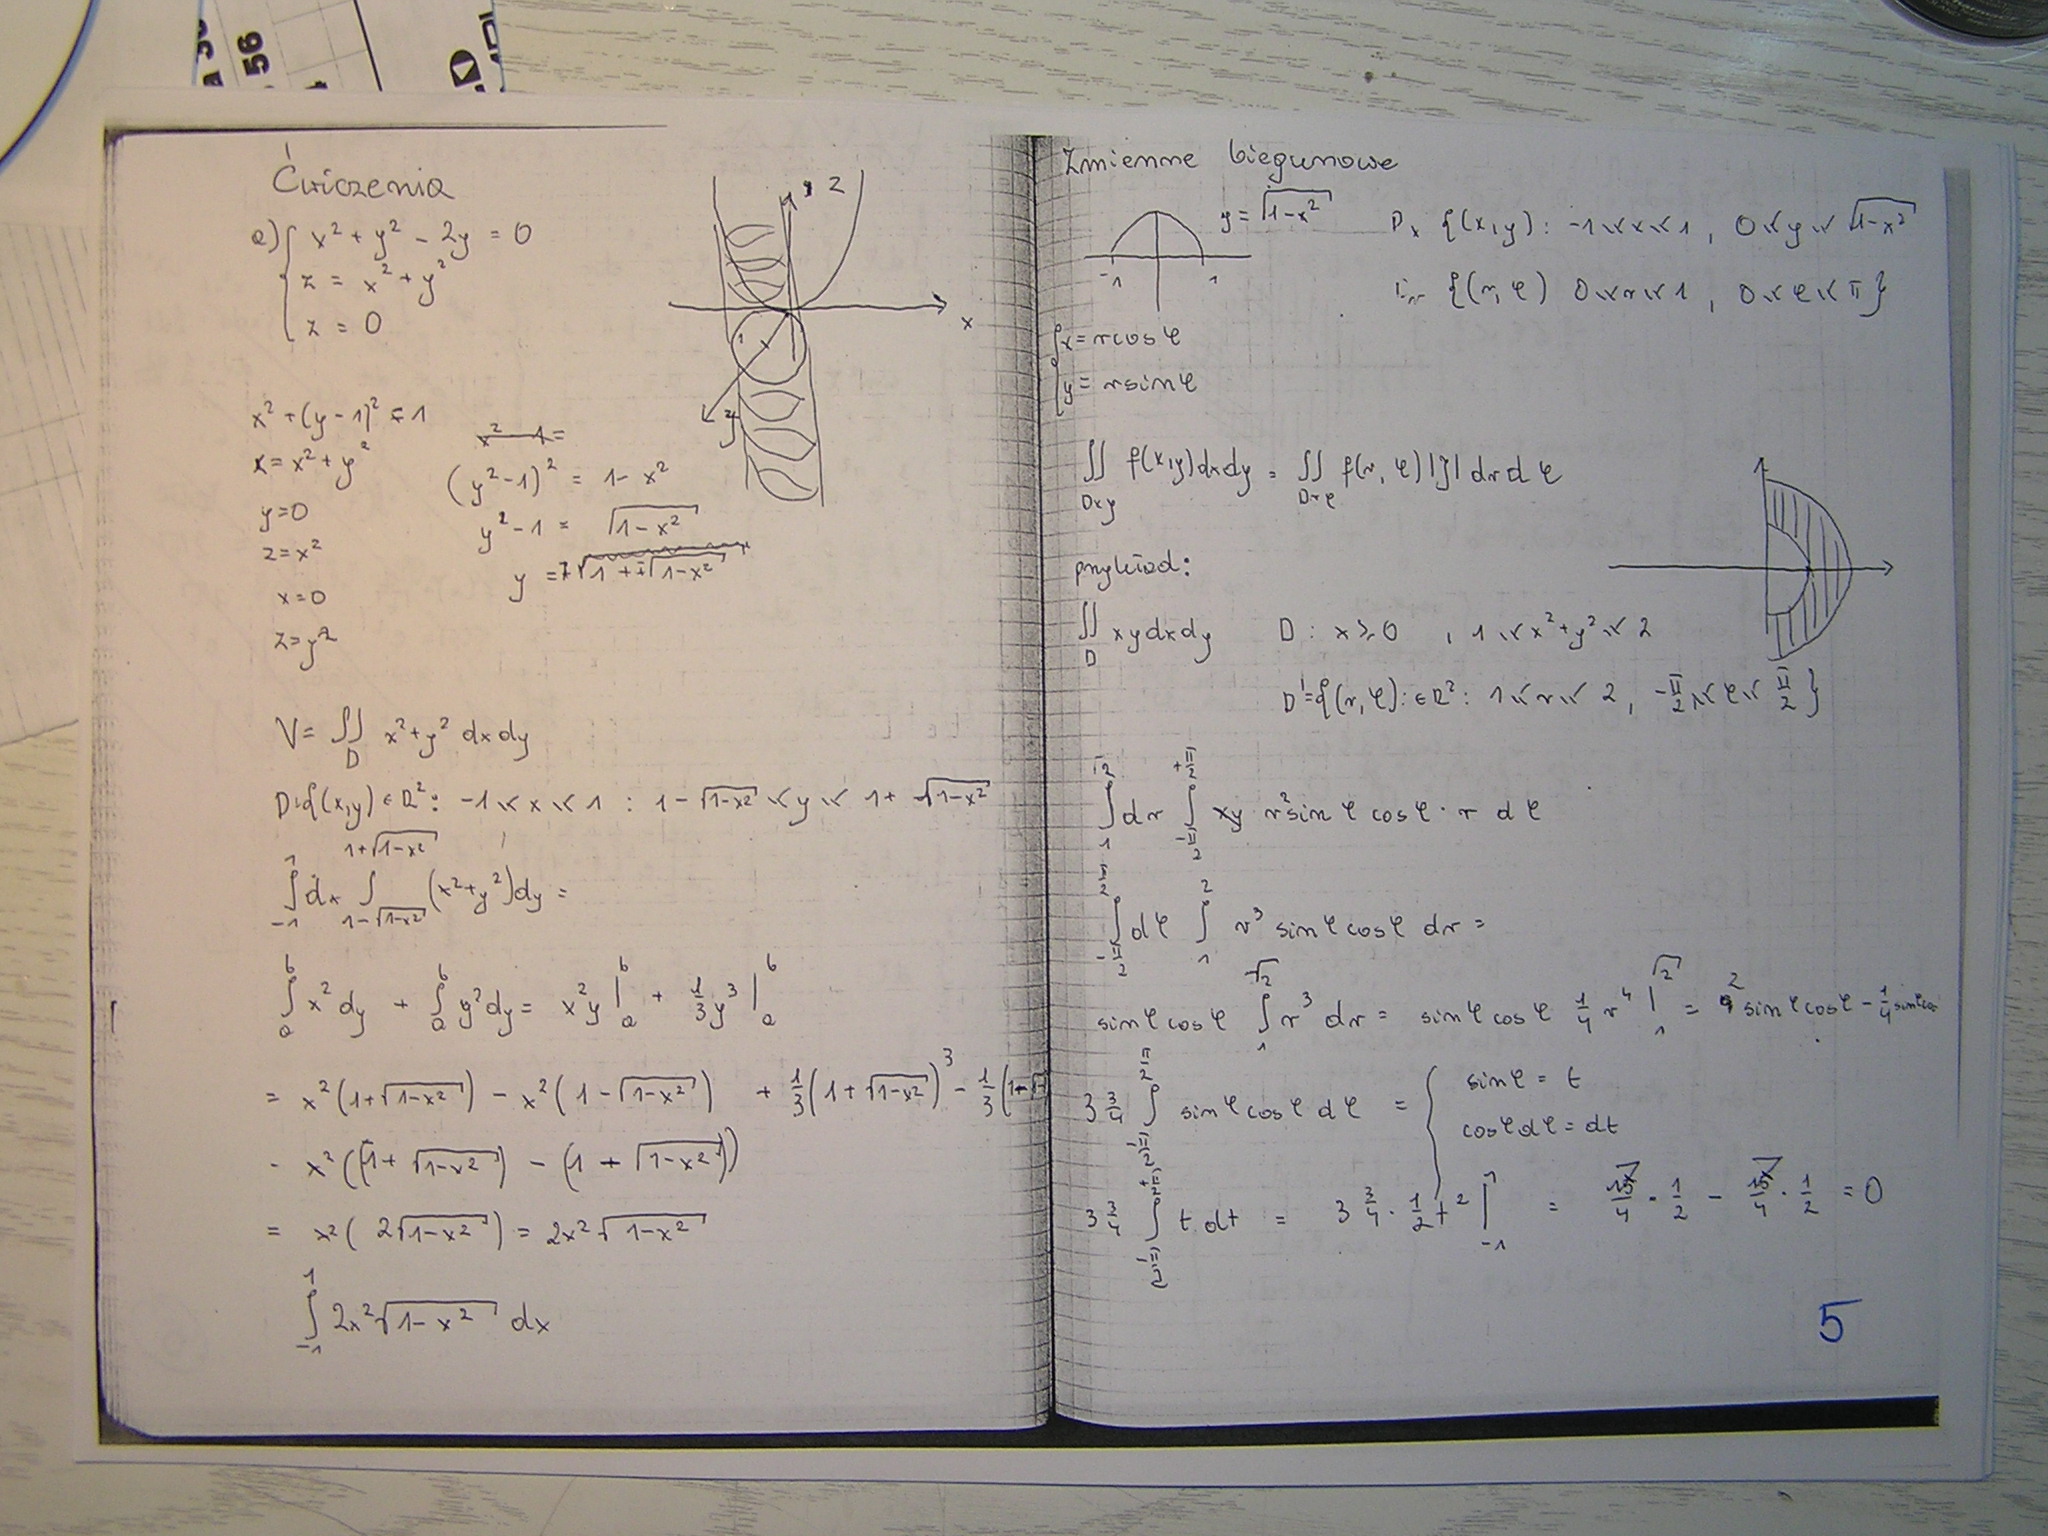 56
Ćwiczenia
a) { x² + y² - 2y = 0
z = x² + y²
z = 0
z
x
y
x² + (y - 1)² = 1
z = x² + y²
y = 0
z = x²
x = 0
z = y²
x² - 1 =
(y² - 1)² = 1 - x²
y² - 1 = √(1 - x²)
V = ∬_D x² + y² dx dy
D = {(x,y) ∈ R²: -1 ≤ x ≤ 1 : 1 - √(1-x²) ≤ y ≤ 1 + √(1-x²)
∫_{-1}^{1} dx ∫_{1-√(1-x²)}^{1+√(1-x²)} (x² + y²) dy =
∫_a^b x² dy + ∫_a^b y² dy = x²y |_a^b + 1/3 y³ |_a^b
= x²(1 + √(1-x²)) - x²(1 - √(1-x²)) + 1/3 (1 + √(1-x²))³ - 1/3
- x²((1 + √(1-x²)) - (1 + √(1-x²)))
= x²(2√(1-x²)) = 2x²√(1-x²)
∫_{-1}^{1} 2x²√(1-x²) dx
Zmienne biegunowe
y = √(1-x²)
-1 1
D_x {(x,y): -1 ≤ x ≤ 1, 0 ≤ y ≤ √(1-x²)
{(r, φ) 0 ≤ r ≤ 1, 0 ≤ φ ≤ π}
{ x = r cos φ
y = r sin φ
∬_{Dxy} f(x,y) dx dy = ∬_{Drφ} f(r, φ) |J| dr dφ
przykład:
∬_D xy dx dy D: x ≥ 0, 1 ≤ x² + y² ≤ 2
D' = {(r, φ): ∈ R²: 1 ≤ r ≤ 2, -π/2 ≤ φ ≤ π/2}
∫_1^{√2} dr ∫_{-π/2}^{+π/2} xy r² sin φ cos φ · r dφ
∫_{-π/2}^{π/2} dφ ∫_1^2 r³ sin φ cos φ dr =
sin φ cos φ ∫_1^{√2} r³ dr = sin φ cos φ 1/4 r⁴ |_1^{√2} = 2 sin φ cos φ - 1/4 sin φ cos
3 3/4 ∫_{-π/2}^{π/2} sin φ cos φ dφ = { sin φ = t
cos φ dφ = dt
3 3/4 ∫_{-π/2}^{+π/2} t dt = 3 3/4 · 1/2 t² |_{-1}^{1} = 7/4 · 1/2 - 7/4 · 1/2 = 0
5